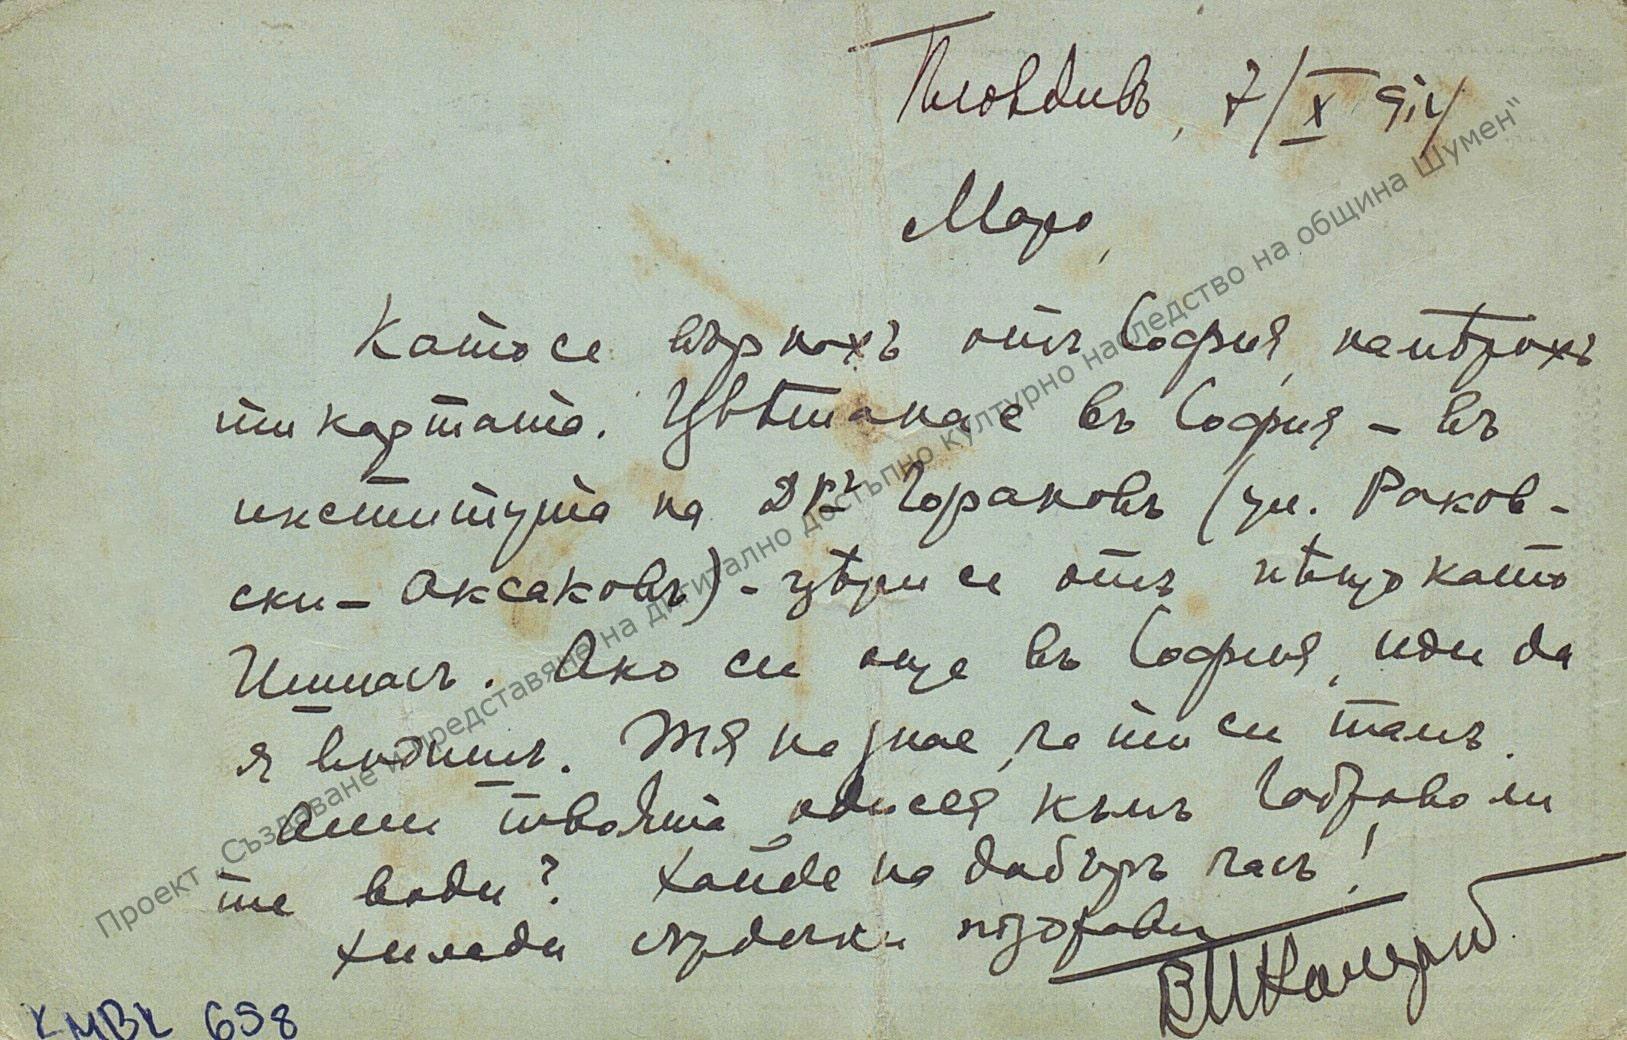 Пловдивъ, 7/X 914
Маро,
Като се върнахъ отъ София, намѣрихъ
ти картата. Цвѣтана е въ София – въ
института на Д-ръ Горановъ (ул. Раков-
ски – Аксаковъ) – цѣри се отъ нѣщо като
Ишиасъ. Ако си още въ София, иди да
я видишъ. Тя не знае, че ти си тамъ.
Ами твоята одисея къмъ Габрово ли
те води? Хайде на добъръ часъ!
Хиляди сърдечни поздрави
КМВК 658
Проект „Създаване и представяне на дигитално достъпно културно наследство на община Шумен"